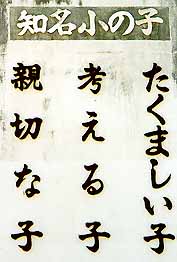 知名小の子
たくましい子
考える子
親切な子